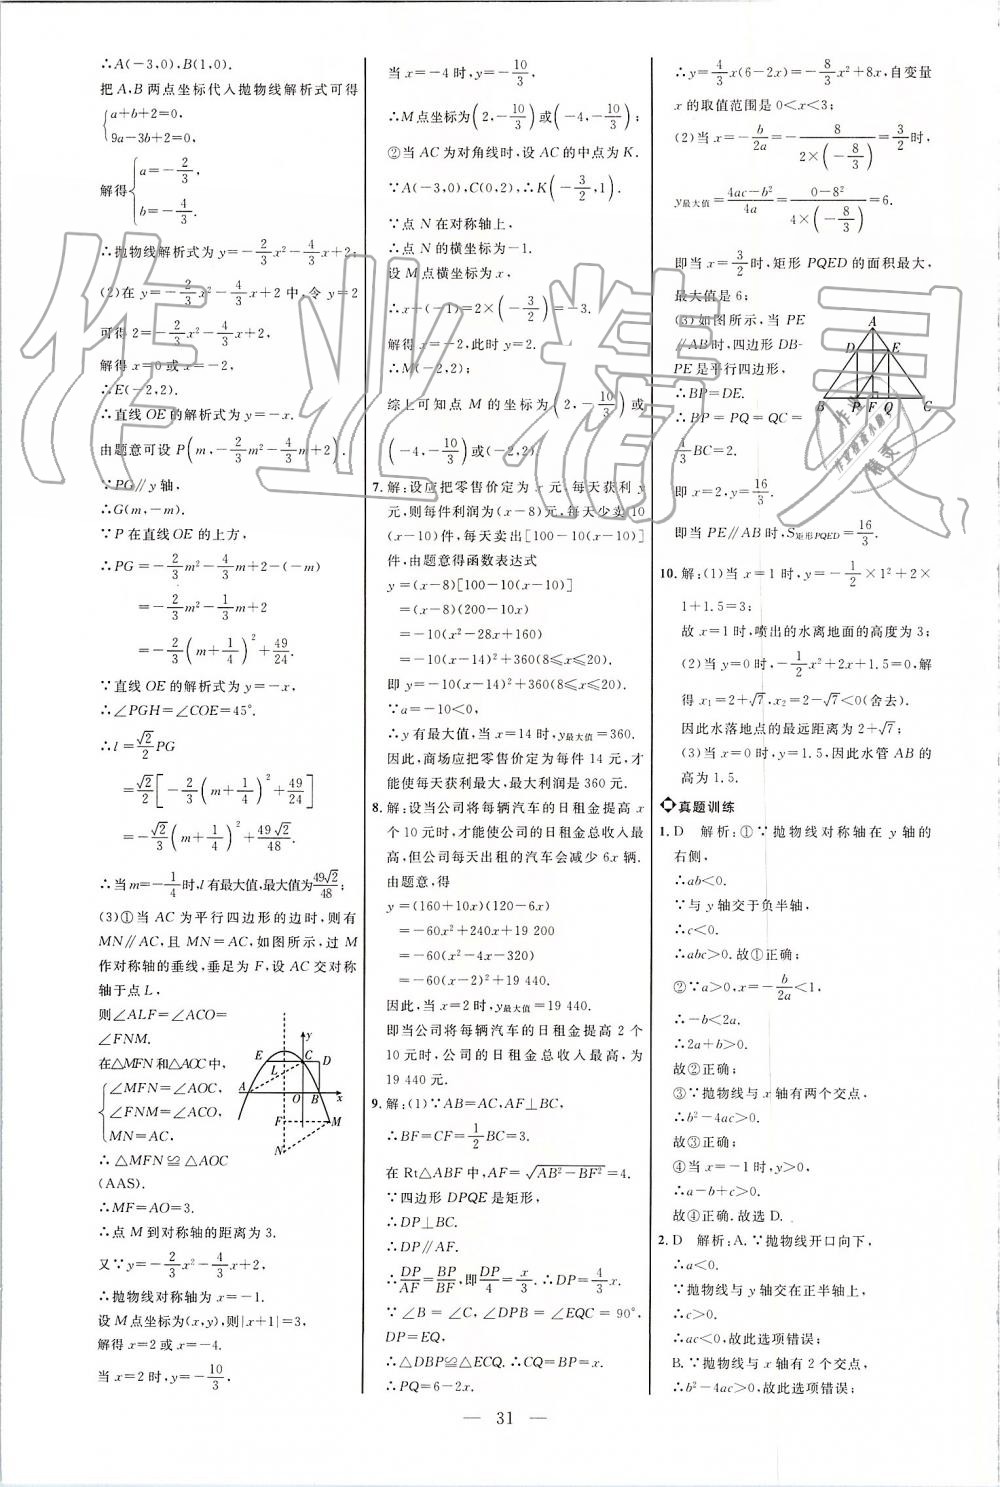 ∴A(-3,0),B(1,0).
把A,B两点坐标代入抛物线解析式可得
{a+b+2=0,
9a-3b+2=0,
解得{a=-2/3,
b=-4/3.
∴抛物线解析式为y=-2/3x²-4/3x+2;
(2)在y=-2/3x²-4/3x+2中,令y=2
可得2=-2/3x²-4/3x+2,
解得x=0或x=-2,
∴E(-2,2).
∴直线OE的解析式为y=-x.
由题意可设P(m,-2/3m²-4/3m+2).
∵PG∥y轴,
∴G(m,-m).
∵P在直线OE的上方,
∴PG=-2/3m²-4/3m+2-(-m)
=-2/3m²-1/3m+2
=-2/3(m+1/4)²+49/24.
∵直线OE的解析式为y=-x,
∴∠PGH=∠COE=45°.
∴l=√2/2PG
=√2/2[-2/3(m+1/4)²+49/24]
=-√2/3(m+1/4)²+49√2/48.
∴当m=-1/4时,l有最大值,最大值为49√2/48;
(3)①当AC为平行四边形的边时,则有
MN∥AC,且MN=AC,如图所示,过M
作对称轴的垂线,垂足为F,设AC交对称
轴于点L,
则∠ALF=∠ACO=
∠FNM.
在△MFN和△AOC中,
{∠MFN=∠AOC,
∠FNM=∠ACO,
MN=AC,
∴△MFN≌△AOC
(AAS).
∴MF=AO=3.
∴点M到对称轴的距离为3.
又∵y=-2/3x²-4/3x+2,
∴抛物线对称轴为x=-1.
设M点坐标为(x,y),则|x+1|=3,
解得x=2或x=-4.
当x=2时,y=-10/3.
y
E
C
D
L
A
O
B
x
F
M
N
当x=-4时,y=-10/3,
∴M点坐标为(2,-10/3)或(-4,-10/3);
②当AC为对角线时,设AC的中点为K.
∵A(-3,0),C(0,2),∴K(-3/2,1).
∵点N在对称轴上,
∴点N的横坐标为-1.
设M点横坐标为x,
∴x+(-1)=2×(-3/2)=-3.
解得x=-2,此时y=2.
∴M(-2,2);
综上可知点M的坐标为(2,-10/3)或
(-4,-10/3)或(-2,2).
7.解:设应把零售价定为x元,每天获利y
元,则每件利润为(x-8)元,每天少卖10
(x-10)件,每天卖出[100-10(x-10)]
件,由题意得函数表达式
y=(x-8)[100-10(x-10)]
=(x-8)(200-10x)
=-10(x²-28x+160)
=-10(x-14)²+360(8≤x≤20).
即y=-10(x-14)²+360(8≤x≤20).
∵a=-10<0,
∴y有最大值,当x=14时,y最大值=360.
因此,商场应把零售价定为每件14元,才
能使每天获利最大,最大利润是360元.
8.解:设当公司将每辆汽车的日租金提高x
个10元时,才能使公司的日租金总收入最
高,但公司每天出租的汽车会减少6x辆.
由题意,得
y=(160+10x)(120-6x)
=-60x²+240x+19 200
=-60(x²-4x-320)
=-60(x-2)²+19 440.
因此,当x=2时,y最大值=19 440.
即当公司将每辆汽车的日租金提高2个
10元时,公司的日租金总收入最高,为
19 440元.
9.解:(1)∵AB=AC,AF⊥BC,
∴BF=CF=1/2BC=3.
在Rt△ABF中,AF=√(AB²-BF²)=4.
∵四边形DPQE是矩形,
∴DP⊥BC.
∴DP∥AF.
∴DP/AF=BP/BF,即DP/4=x/3.∴DP=4/3x.
∵∠B=∠C,∠DPB=∠EQC=90°,
DP=EQ,
∴△DBP≌△ECQ.∴CQ=BP=x.
∴PQ=6-2x.
∴y=4/3x(6-2x)=-8/3x²+8x,自变量
x的取值范围是0<x<3;
(2)当x=-b/2a=-8/(2×(-8/3))=3/2时,
y最大值=(4ac-b²)/4a=(0-8²)/(4×(-8/3))=6.
即当x=3/2时,矩形PQED的面积最大,
最大值是6;
(3)如图所示,当PE
∥AB时,四边形DB-
PE是平行四边形,
∴BP=DE.
∴BP=PQ=QC=
1/3BC=2.
即x=2,y=16/3.
即当PE∥AB时,S矩形PQED=16/3.
A
D
E
B
P
F
Q
C
10.解:(1)当x=1时,y=-1/2×1²+2×
1+1.5=3;
故x=1时,喷出的水离地面的高度为3;
(2)当y=0时,-1/2x²+2x+1.5=0,解
得x₁=2+√7,x₂=2-√7<0(舍去).
因此水落地点的最远距离为2+√7;
(3)当x=0时,y=1.5,因此水管AB的
高为1.5.
真题训练
1.D 解析:①∵抛物线对称轴在y轴的
右侧,
∴ab<0.
∵与y轴交于负半轴,
∴c<0.
∴abc>0.故①正确.
②∵a>0,x=-b/2a<1,
∴-b<2a.
∴2a+b>0.
故②正确;
③∵抛物线与x轴有两个交点,
∴b²-4ac>0.
故③正确;
④当x=-1时,y>0.
∴a-b+c>0.
故④正确.故选D.
2.D 解析:A.∵抛物线开口向下,
∴a<0.
∵抛物线与y轴交在正半轴上,
∴c>0.
∴ac<0,故此选项错误;
B.∵抛物线与x轴有2个交点,
∴b²-4ac>0,故此选项错误;
— 31 —
作业精灵